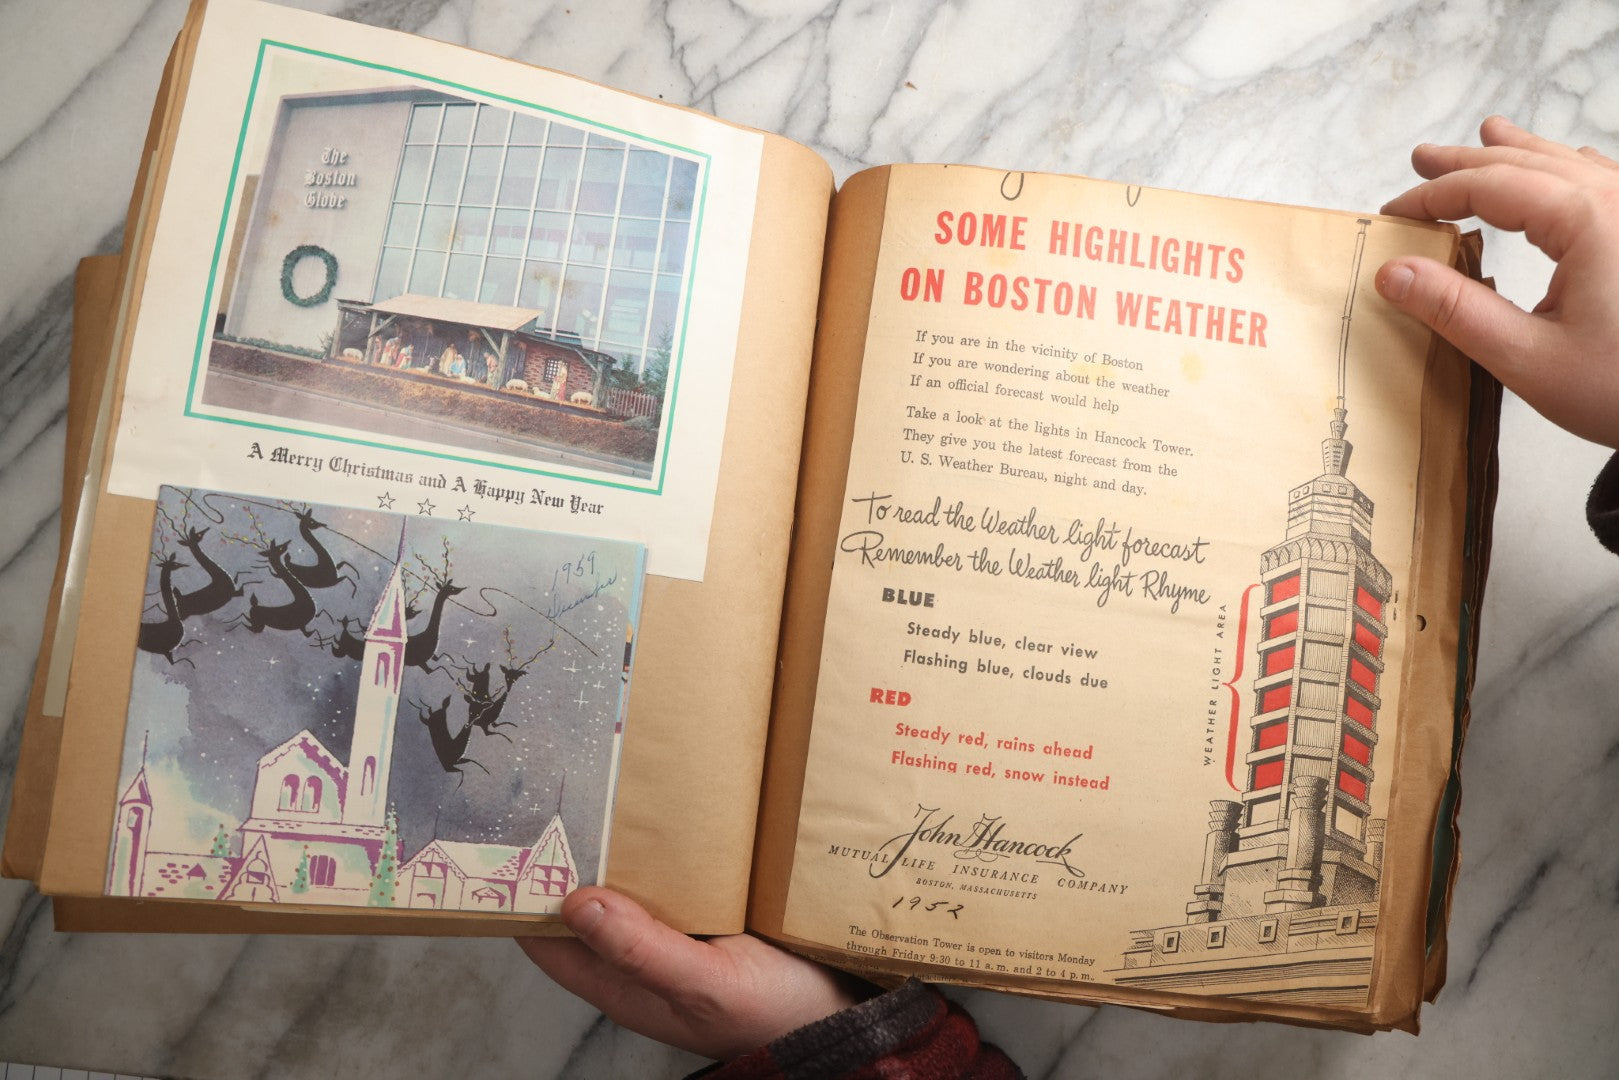 The
Boston
Globe
A Merry Christmas and A Happy New Year
1959
December
SOME HIGHLIGHTS
ON BOSTON WEATHER
If you are in the vicinity of Boston
If you are wondering about the weather
If an official forecast would help
Take a look at the lights in Hancock Tower.
They give you the latest forecast from the
U. S. Weather Bureau, night and day.
To read the Weather light forecast
Remember the Weather light Rhyme
BLUE
Steady blue, clear view
Flashing blue, clouds due
RED
Steady red, rains ahead
Flashing red, snow instead
WEATHER LIGHT AREA
John Hancock
MUTUAL LIFE INSURANCE COMPANY
BOSTON, MASSACHUSETTS
1952
The Observation Tower is open to visitors Monday
through Friday 9:30 to 11 a. m. and 2 to 4 p. m.